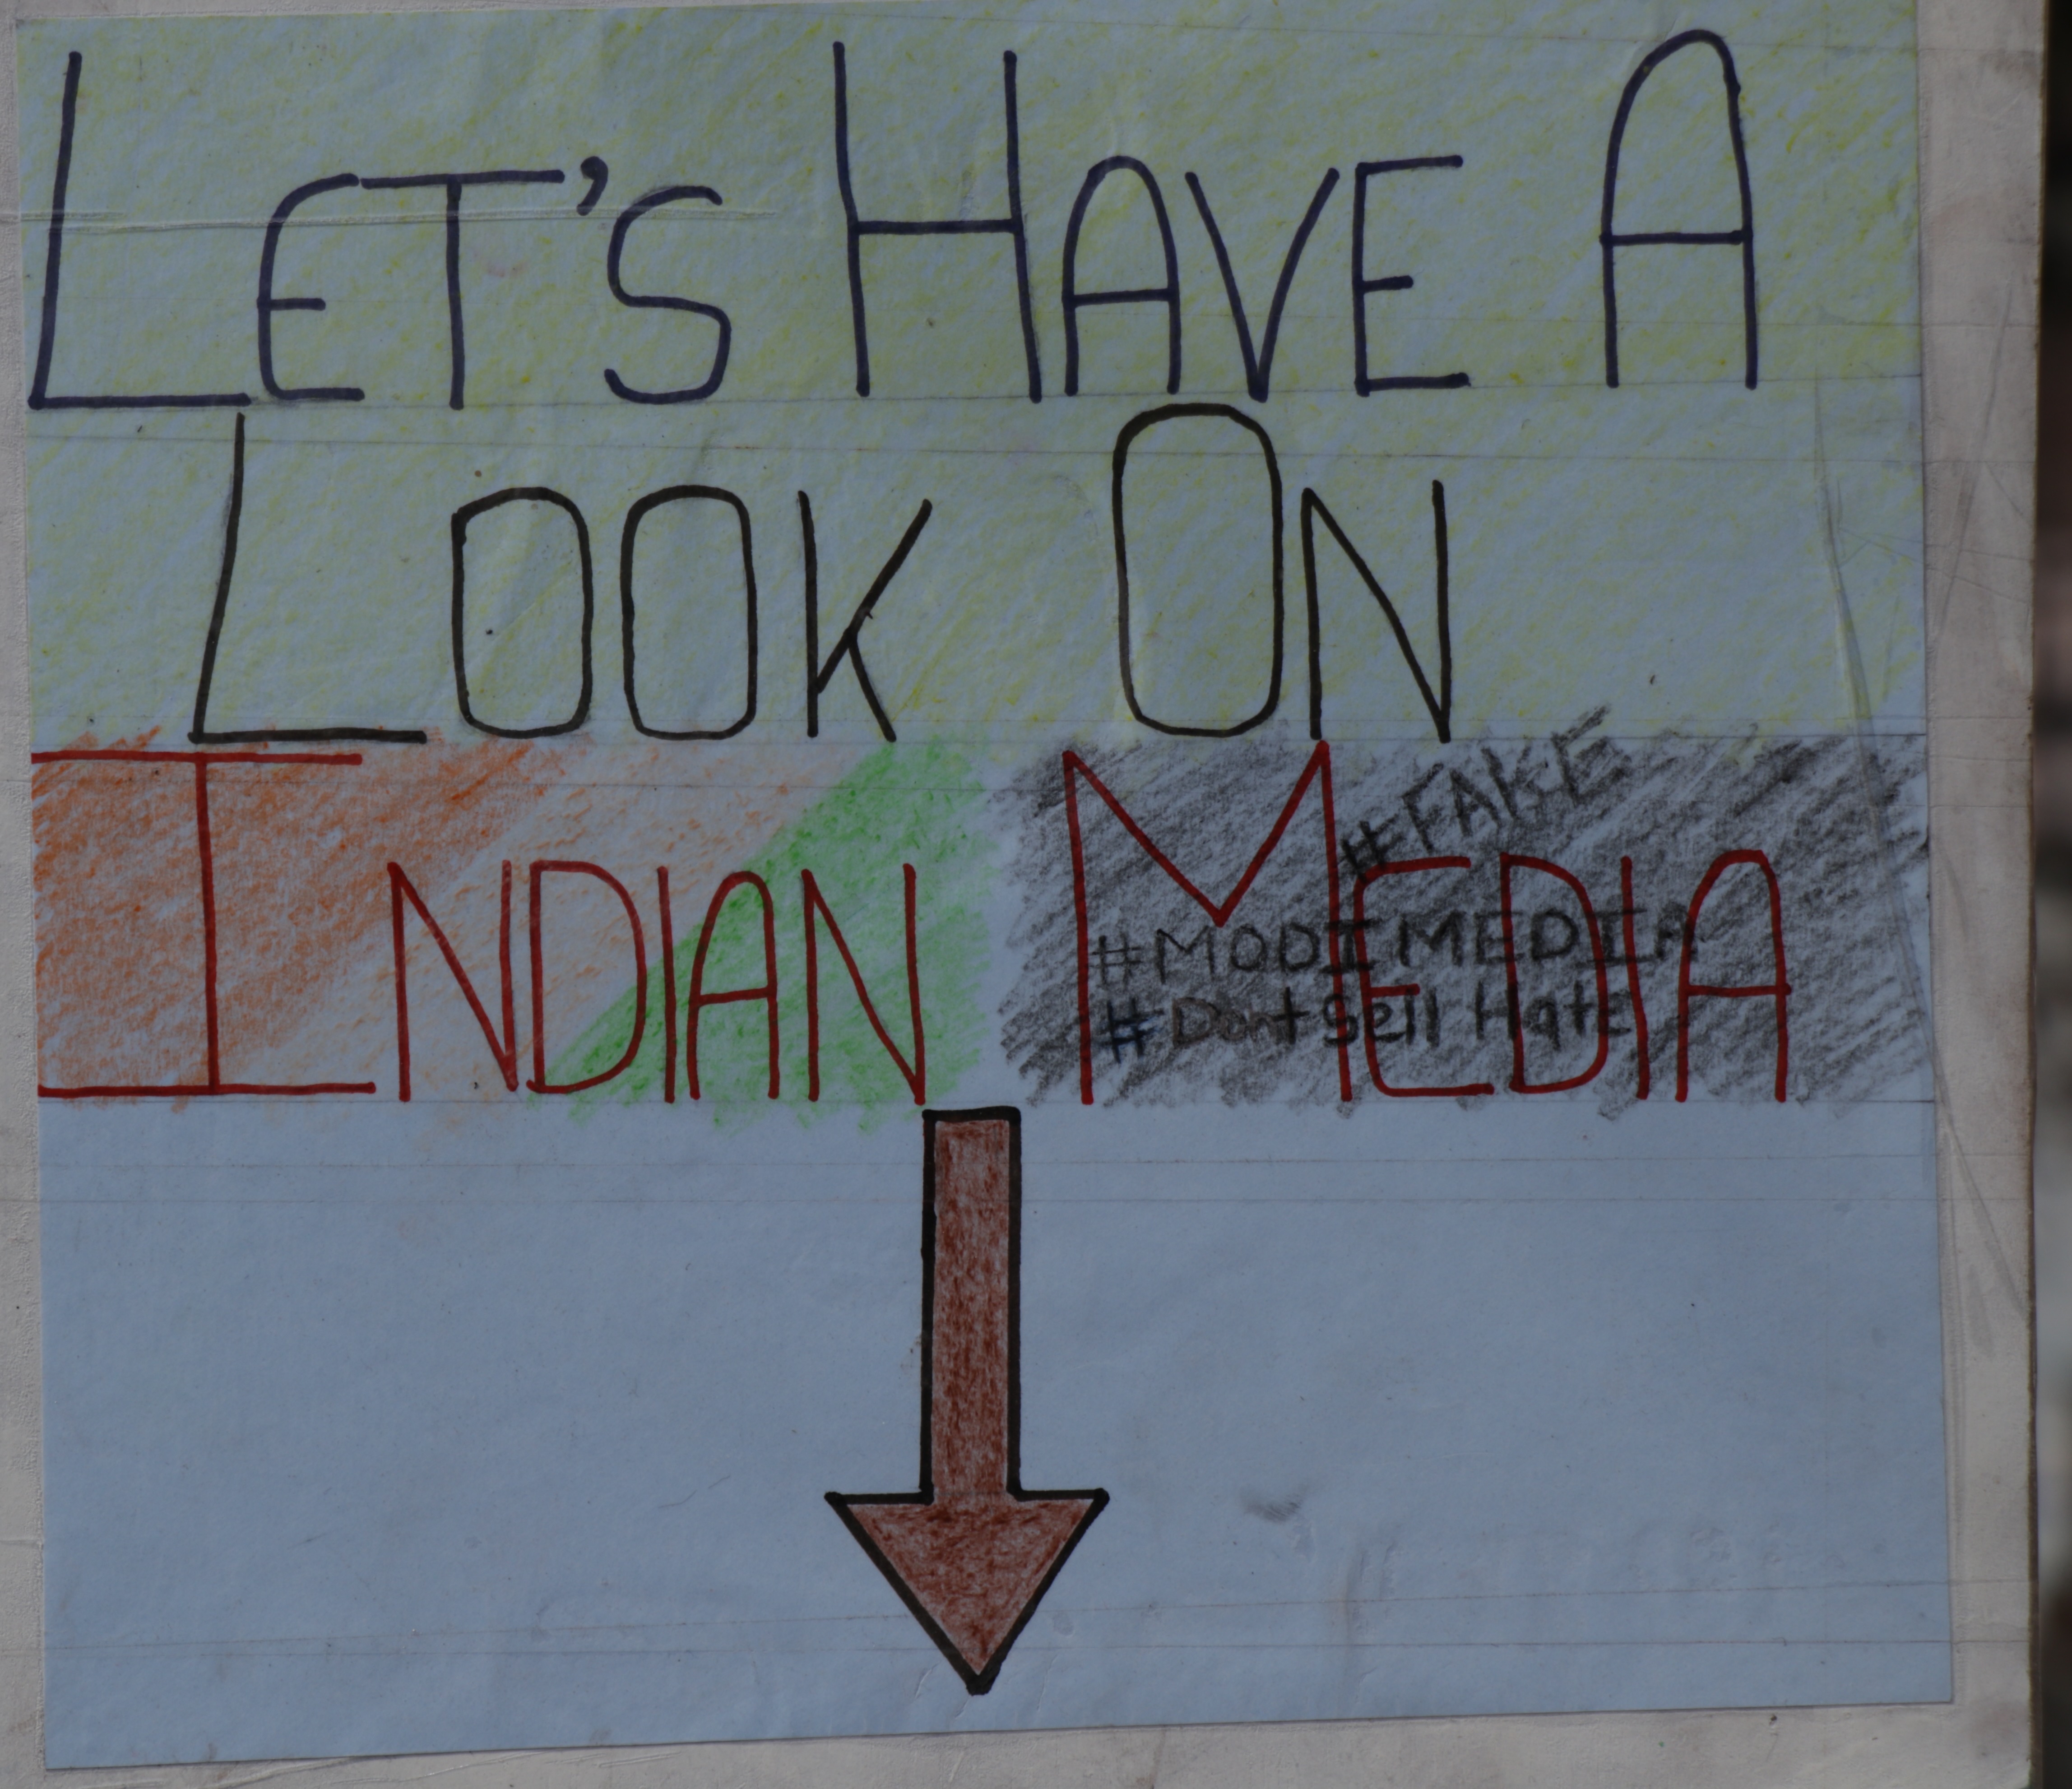 LET'S HAVE A
LOOK ON
INDIAN MEDIA
#FAKE
#MODIMEDIA
#Dont Sell Hate